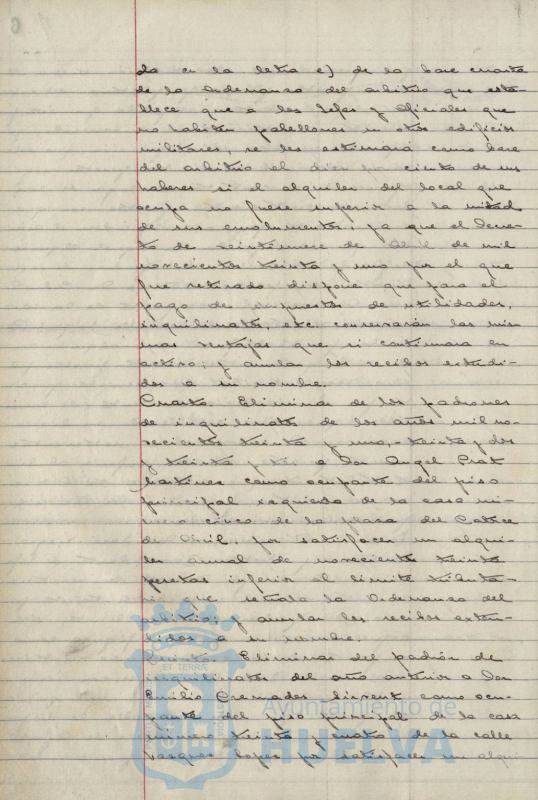 do en la letra c) de la base cuarta
de la Ordenanza del arbitrio que esta-
blece que a los Jefes y Oficiales que
no habiten pabellones u otros edificios
militares, se les estimará como base
del arbitrio el diez por ciento de sus
haberes si el alquiler del local que
ocupa no fuese superior a la mitad
de sus emolumentos; ya que el Decre-
to de veintinueve de Abril de mil
novecientos treinta y uno por el que
fue retirado dispone que para el
pago de impuestos de utilidades,
inquilinatos, etc. conservarán las mis-
mas ventajas que si continuara en
activo; y anular los recibos extendi-
dos a su nombre.
Cuarto. Eliminar de los padrones
de inquilinatos de los años mil no-
vecientos treinta y uno, treinta y dos
y treinta y tres a Don Angel Prat
Martinez como ocupante del piso
principal izquierda de la casa nú-
mero cinco de la plaza del Catorce
de Abril, por satisfacer un alqui-
ler anual de novecientas treinta
pesetas inferior al límite tributa-
rio que señala la Ordenanza del
arbitrio; y anular los recibos exten-
didos a su nombre.
Quinto. Eliminar del padrón de
inquilinatos del año anterior a Don
Emilio Cremades Sirvent como ocu-
pante del piso principal de la casa
número treinta y cuatro de la calle
Vazquez Lopez por satisfacer un alqui
ET TERRÆ
Ayuntamiento de
HUELVA